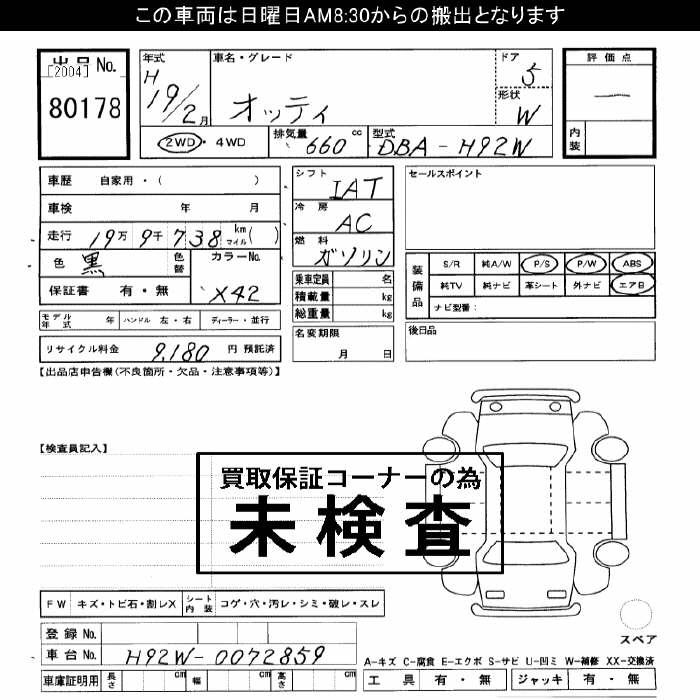 この車両は日曜日AM8:30からの搬出となります
出品 No.
[2004]
80178
年式
H
19/2月
車名・グレード
オッティ
ドア
5
形状
W
評価点
—
内装
2WD・4WD
排気量 660 cc
型式 DBA-H92W
車歴 自家用・( )
車検 年 月
走行 19万 9千 738 km マイル ( )
色 黒 色替
カラーNo.
X42
保証書 有・無
モデル年式 年 ハンドル 左・右 ディーラー・並行
リサイクル料金 9,180 円 預託済
シフト
IAT
冷房
AC
燃料
ガソリン
乗車定員 名
積載量 kg
総重量 kg
名変期限
月 日
セールスポイント
装備品
S/R 純A/W P/S P/W ABS
純TV 純ナビ 革シート 外ナビ エアB
ナビ型番:
後日品
【出品店申告欄(不良箇所・欠品・注意事項等)】
【検査員記入】
買取保証コーナーの為
未検査
FW キズ・トビ石・割レX シート内装 コゲ・穴・汚レ・シミ・破レ・スレ
登録 No.
車台 No. H92W-0072859
車庫証明用 長さ cm 幅 cm 高さ cm
スペア
A-キズ C-腐食 E-エクボ S-サビ U-凹ミ W-補修 XX-交換済
工具 有・無 ジャッキ 有・無